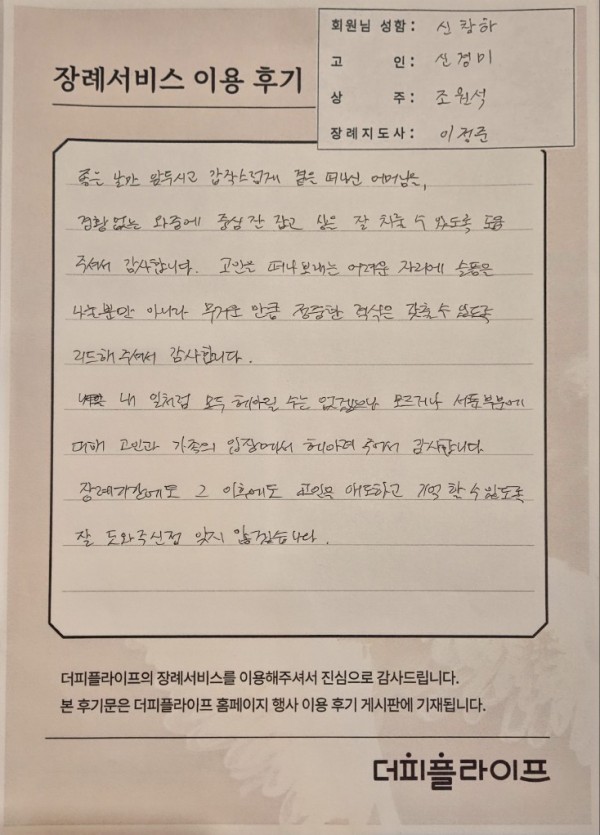 회원님 성함 : 신창하
고 인 : 신경미
상 주 : 조원석
장례지도사 : 이정준
장례서비스 이용 후기
좋은 날만 앞두시고 갑작스럽게 곁은 떠나신 어머님을,
경황없는 와중에 중심 잔 잡고 상은 잘 치룰 수 있도록 도움
주셔서 감사합니다. 고인은 떠나보내는 어려운 자리에 슬픔은
나눌뿐만 아니라 무거운 만큼 정중한 격식은 갖출 수 있도록
리드해 주셔서 감사합니다.
내 일처럼 모두 헤아릴 수는 없겠으나 모르거나 서툰부분에
대해 고인과 가족의 입장에서 헤아려 주셔서 감사합니다.
장례기간에도 그 이후에도 고인을 애도하고 기억 할 수 있도록
잘 도와주신점 잊지 않겠습니다.
더피플라이프의 장례서비스를 이용해주셔서 진심으로 감사드립니다.
본 후기문은 더피플라이프 홈페이지 행사 이용 후기 게시판에 기재됩니다.
더피플라이프